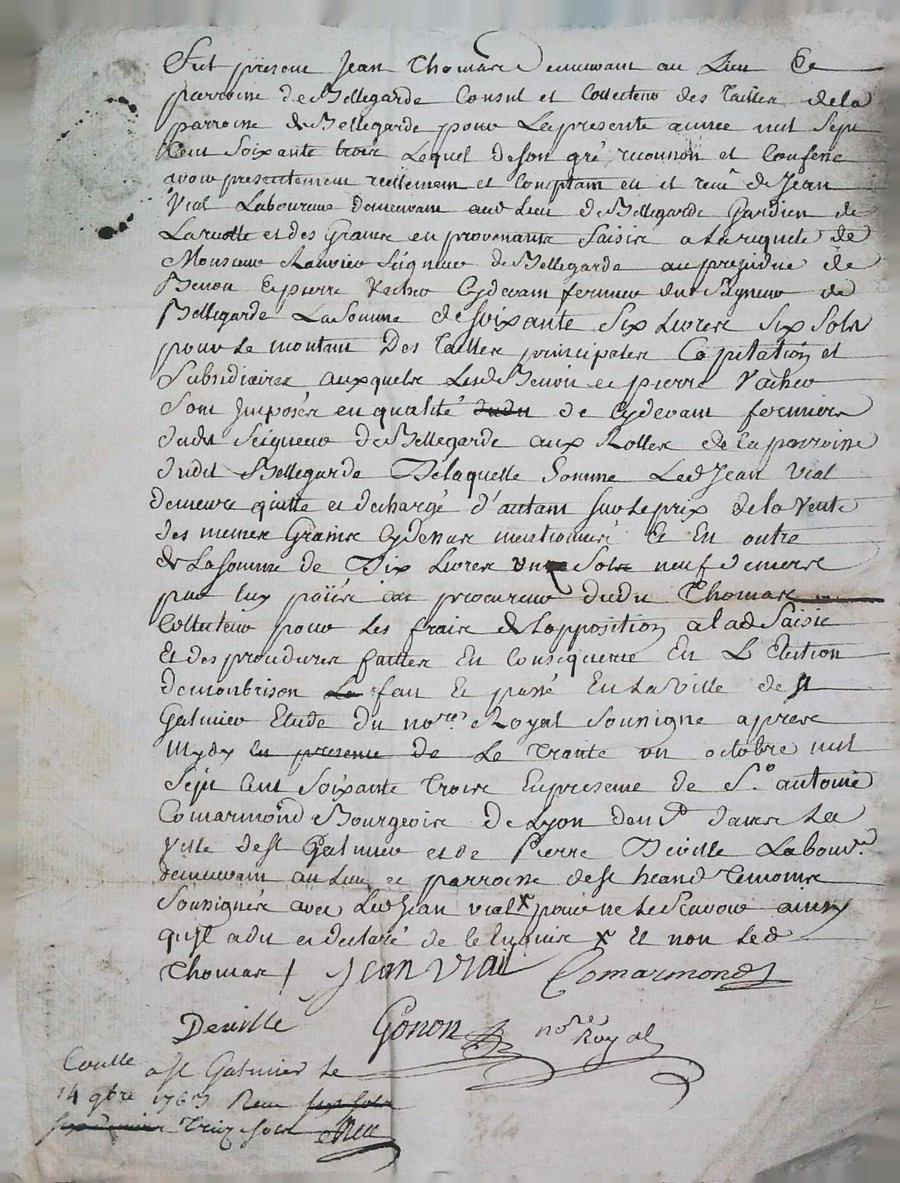 Fut present Jean Thomas Demeurant au Lieu Et
parroine de Bellegarde Consul et Collecteur des Tailles de la
parroine de Bellegarde pour La presente année mil Sept
Cent Soixante trois Lequel de son gré reconnoit et Confesse
avoir presentement reellement et Comptam eu et receu de Jean
Vial Laboureur demeurant aud Lieu de Bellegarde Gardien de
La recolte et des Grains en provenants Saisis a la requete de
Monsieur Ranvier Seigneur de Bellegarde au prejudice de
Benoit Et pierre Vacher Cydevant fermiers du Seigneur de
Bellegarde La Somme de Soixante Six Livres Six Sols
pour Le montant Des Tailles principales Capitation et
Subsidiaires auxquels Lesd Benoit et pierre Vacher
Sont Imposés en qualité dudit de Cydevant fermiers
dudit Seigneur de Bellegarde aux Rolles de la parroine
dudit Bellegarde De laquelle Somme Led Jean Vial
demeure quitte et dechargé d'autant Sur Le prix de la Vente
des memes Grains Cydenus mentionnés Et En outre
de La Somme de Dix Livres un Sols neuf deniers
par luy paiés au procureur dudit Thomas
Collecteur pour Les frais de L'opposition a lad Saisie
Et des procedures faittes En Consequence En L'Election
de monbrison fait Et passé En La Ville de St
Galmier Etude du nore Royal Sousigne apres
midy en presence de Le Trante un octobre mil
Sept Cent Soixante Trois En presence de Sr. antoine
Comarmond Bourgeois de Lyon demt dans La
Ville de St Galmier et de Pierre Deville Labour.
demeurant au Lieu et parroine de St heand Temoins
Sousignés avec Led Jean vial x pour ne Le Scavoir ainsy
qu'il a dit et declaré de ce Enquis x Et non Led
Thomas / Jean Vial Comarmond
Deville Gonon nore Royal
Conlle a St Galmier Le
14 9bre 1763 Reçu six sols
Treize sols